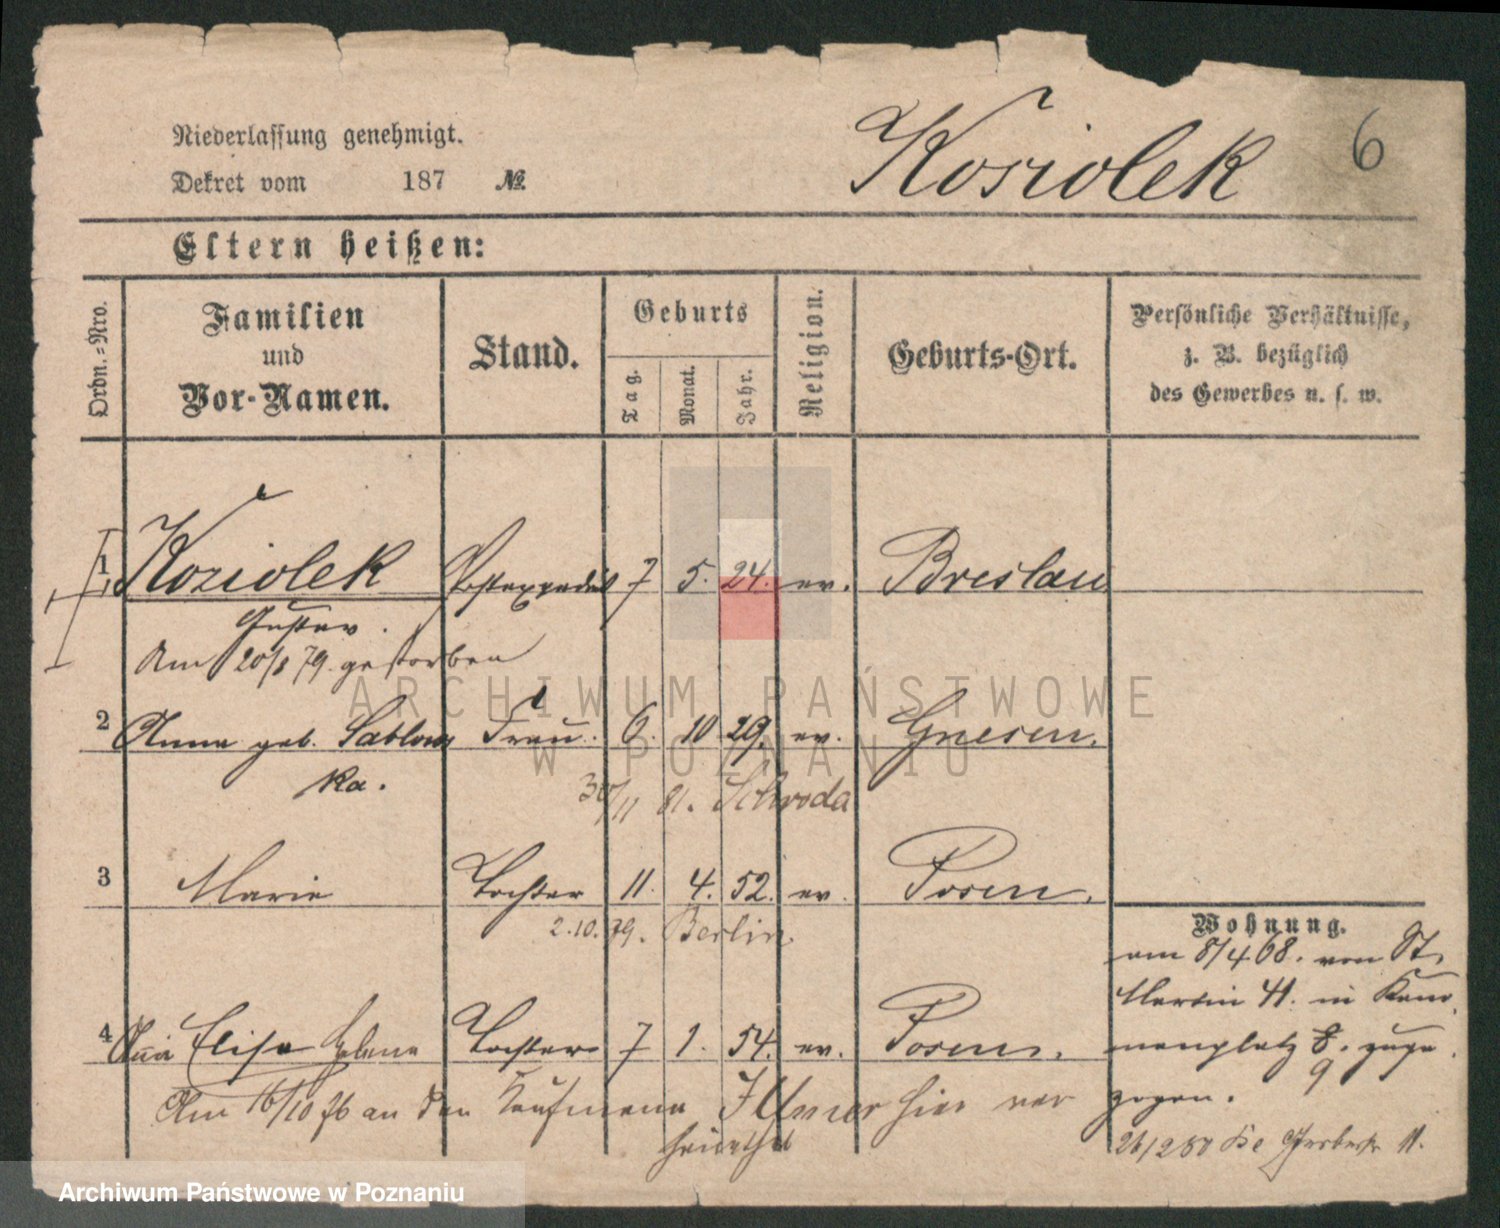 Niederlassung genehmigt.
Dekret vom 187 №
Kosiolek
6
Eltern heißen:
Ordn.-Nro.
Familien
und
Vor-Namen.
Stand.
Geburts
Tag.
Monat.
Jahr.
Religion.
Geburts-Ort.
Persönliche Verhältnisse,
z. B. bezüglich
des Gewerbes u. s. w.
1 Koziolek 7 5. 24. ev. Breslau
Gustav.
Am 20/8 79. gestorben
2 Anna geb. Sablows Frau. 6. 10 29. ev. Gnesen.
ka.
30/11 81. Schroda
3 Marie Tochter 11. 4. 52. ev. Posen.
2.10.79. Berlin.
Wohnung.
am 8/4 68. von St.
Martin 41. in
4 Elise Helene Tochter 7 1. 54. ev. Posen.
8. zuge
9
Am 16/10 76 an den Kaufmann hier ver
zogen.
heirathet
11.
ARCHIWUM PAŃSTWOWE
W POZNANIU
Archiwum Państwowe w Poznaniu